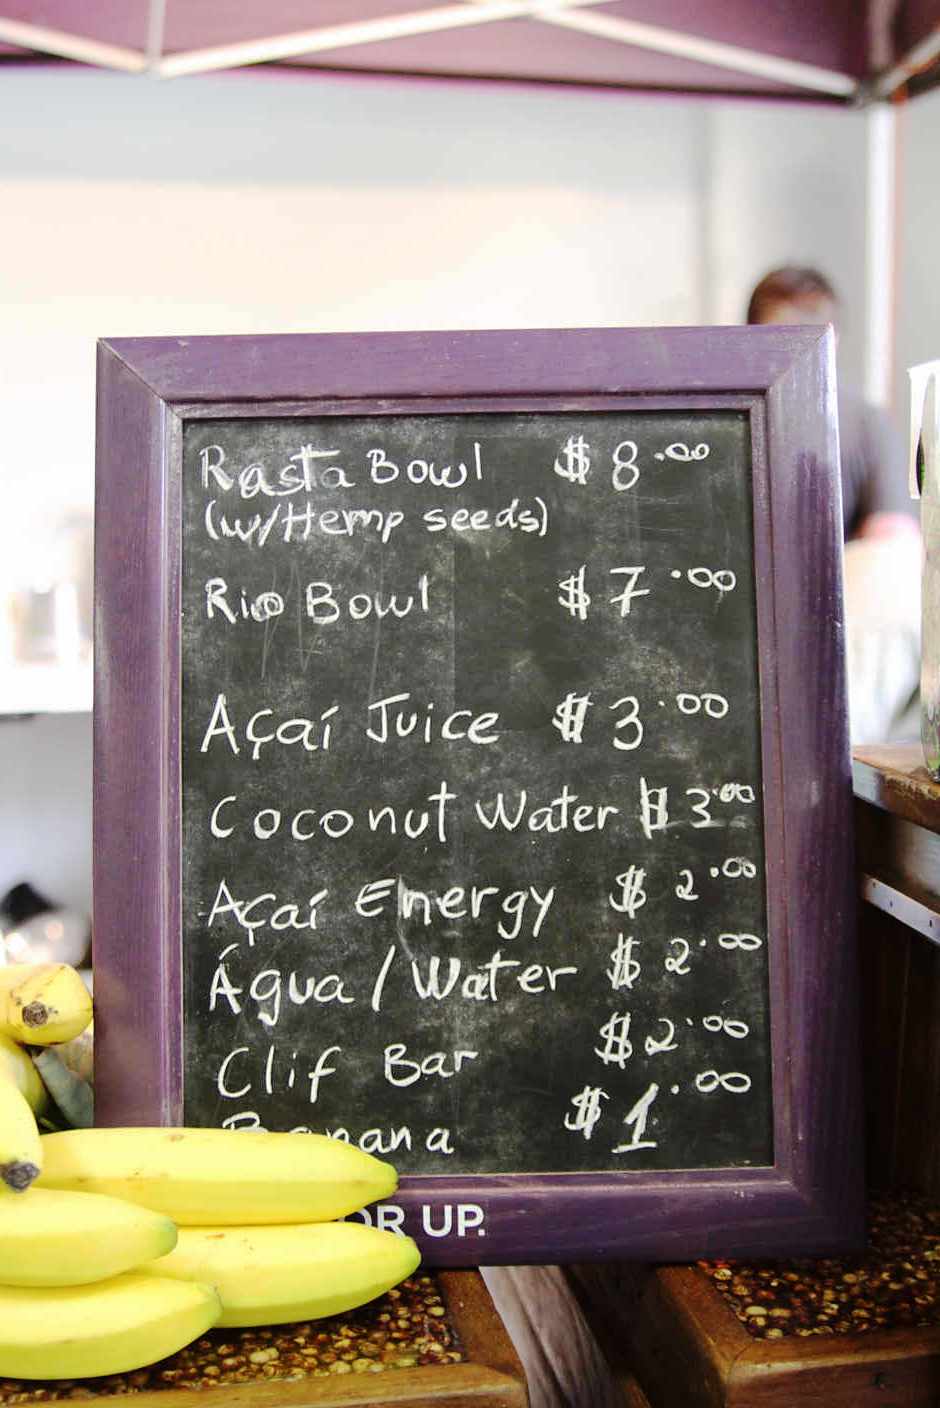 Rasta Bowl $8.00
(w/Hemp seeds)
Rio Bowl $7.00
Açaí Juice $3.00
Coconut Water $3.00
Açaí Energy $2.00
Água/Water $2.00
Clif Bar $2.00
Banana $1.00
UP.